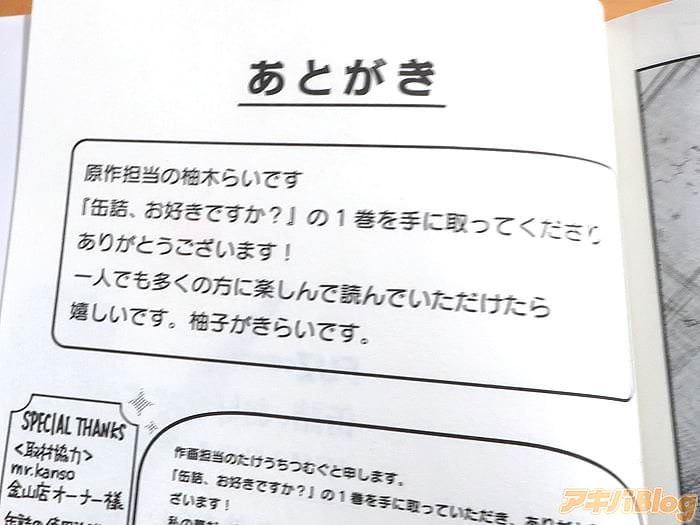 あとがき
原作担当の柚木らいです
『缶詰、お好きですか?』の1巻を手に取ってくださり
ありがとうございます!
一人でも多くの方に楽しんで読んでいただけたら
嬉しいです。柚子がきらいです。
SPECIAL THANKS
<取材協力>
mr.kanso
金山店オーナー様
作画担当のたけうちつむぐと申します。
『缶詰、お好きですか?』の1巻を手に取っていただき、ありがと
ざいます!
アキバBlog